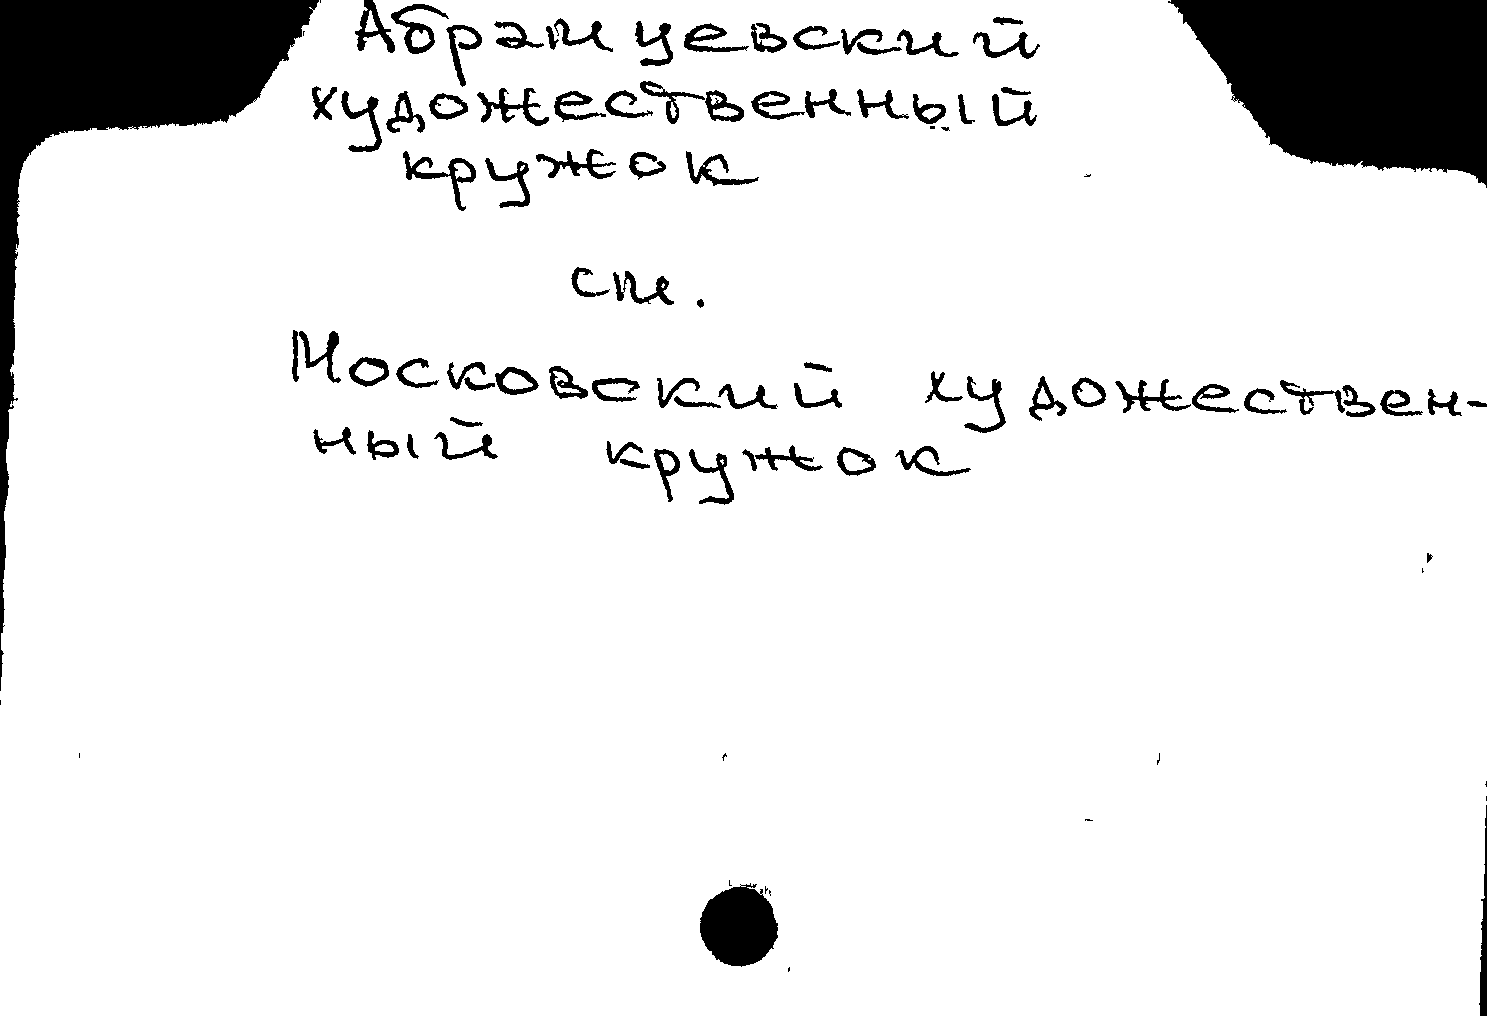 Абрамцевский
художественный
кружок
см.
Московский художествен-
ный кружок